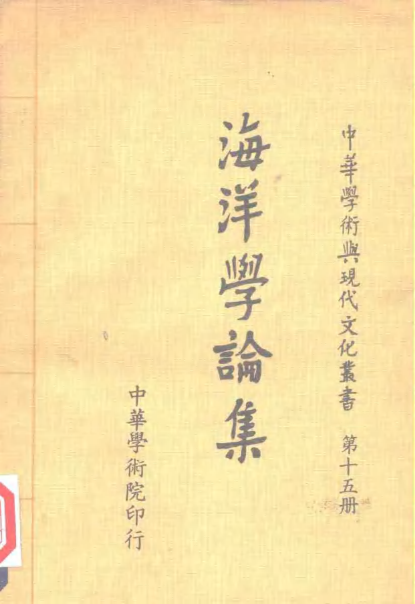 中華學術與現代文化叢書 第十五册
海洋學論集
中華學術院印行